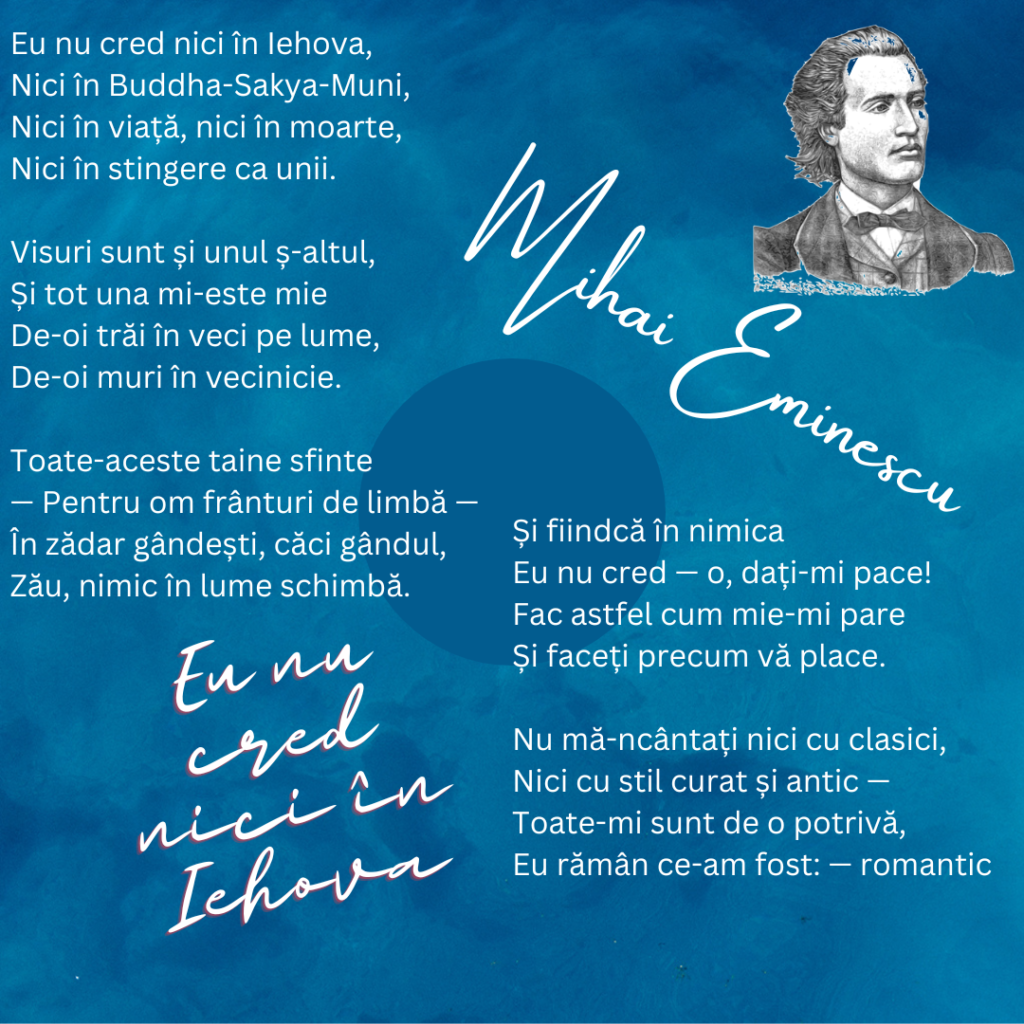 Eu nu cred nici în Iehova,
Nici în Buddha-Sakya-Muni,
Nici în viață, nici în moarte,
Nici în stingere ca unii.
Visuri sunt și unul ș-altul,
Și tot una mi-este mie
De-oi trăi în veci pe lume,
De-oi muri în vecinicie.
Toate-aceste taine sfinte
— Pentru om frânturi de limbă —
În zădar gândești, căci gândul,
Zău, nimic în lume schimbă.
Eu nu
cred
nici în
Iehova
Mihai Eminescu
Și fiindcă în nimica
Eu nu cred — o, dați-mi pace!
Fac astfel cum mie-mi pare
Și faceți precum vă place.
Nu mă-ncântați nici cu clasici,
Nici cu stil curat și antic —
Toate-mi sunt de o potrivă,
Eu rămân ce-am fost: — romantic